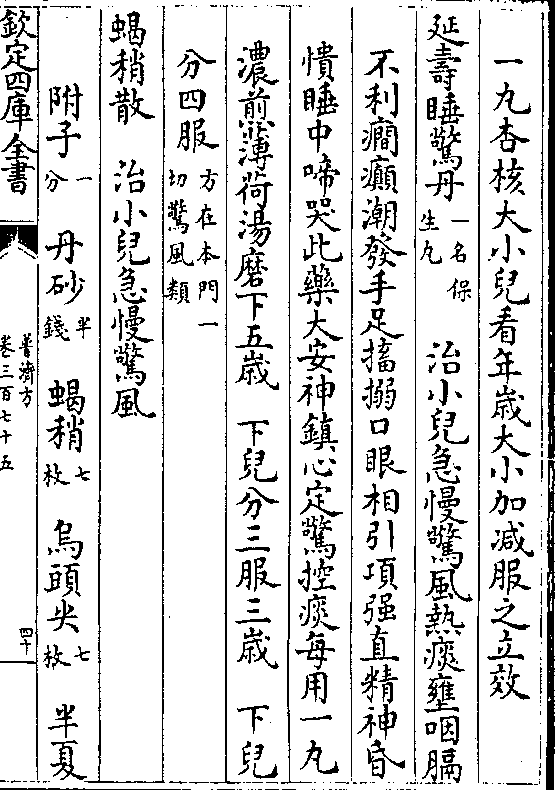 一丸杏核大小兒看年歳大小加减服之立效
延壽睡驚丹一名保生丸　治小兒急慢驚風熱痰壅咽膈
不利癎癲潮發手足搐搦口眼相引項强直精神昏
憒睡中啼哭此藥大安神鎮心定驚控痰每用一丸
濃煎薄荷湯磨下五歳　下兒分三服三歳　下兒
分四服方在本門一切驚風類
蝎稍散　治小兒急慢驚風
附子一分　丹砂半錢　蝎稍七枚　烏頭尖七枚　半夏
欽定四庫全書
普濟方
卷三百七十五
四十